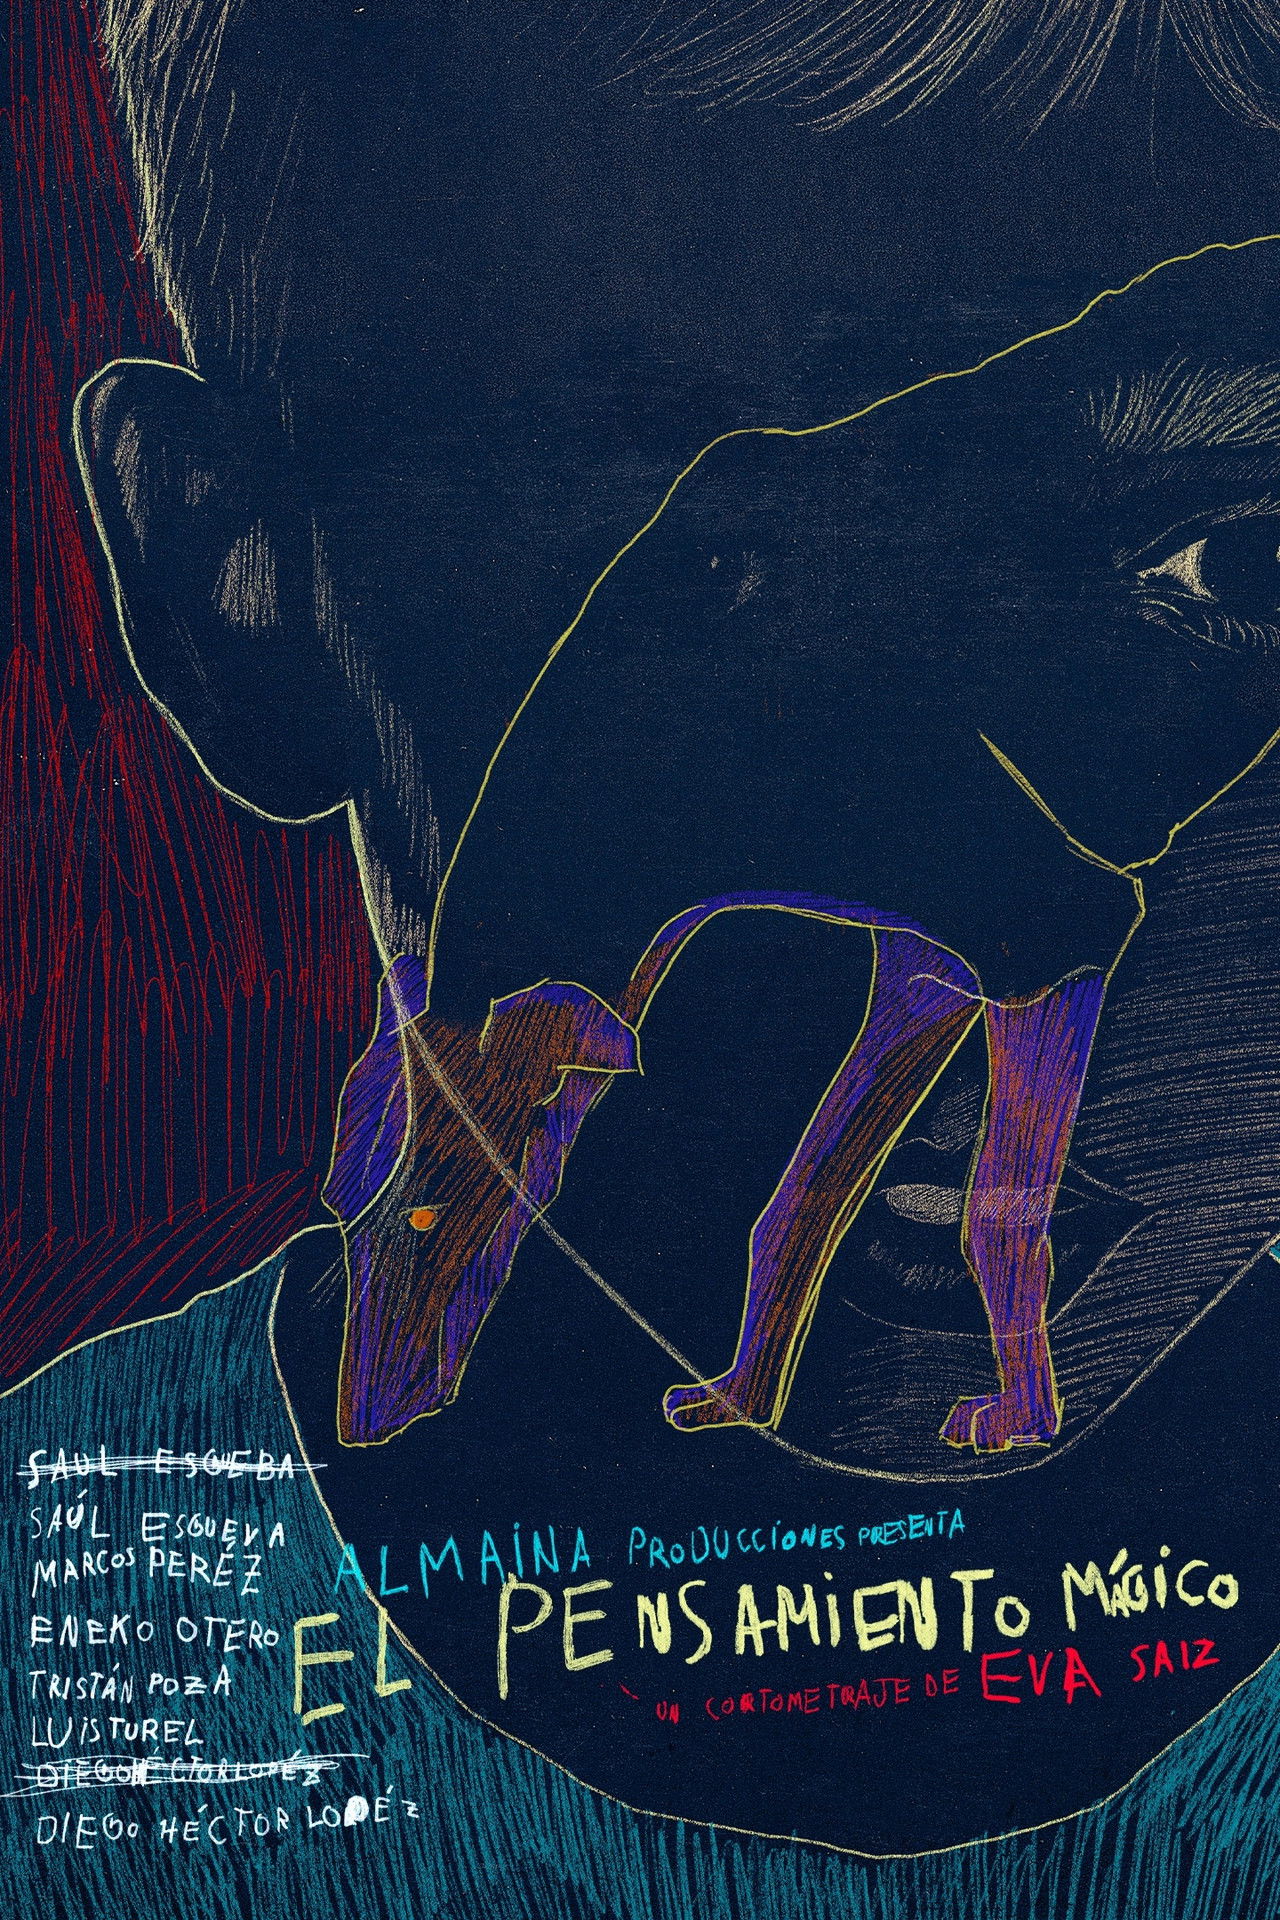 SAUL ESGUEBA
SAÚL ESGUEVA
MARCOS PERÉZ
ENEKO OTERO
TRISTÁN POZA
LUIS TUREL
DIEGO HÉCTOR LOPÉZ
DIEGO HÉCTOR LOPÉZ
ALMAINA PRODUCCIONES PRESENTA
EL PENSAMIENTO MÁGICO
UN CORTOMETRAJE DE EVA SAIZ